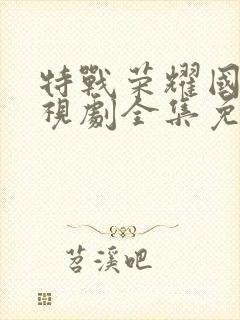 特戰荣耀國
視劇全集免
苕溪吧